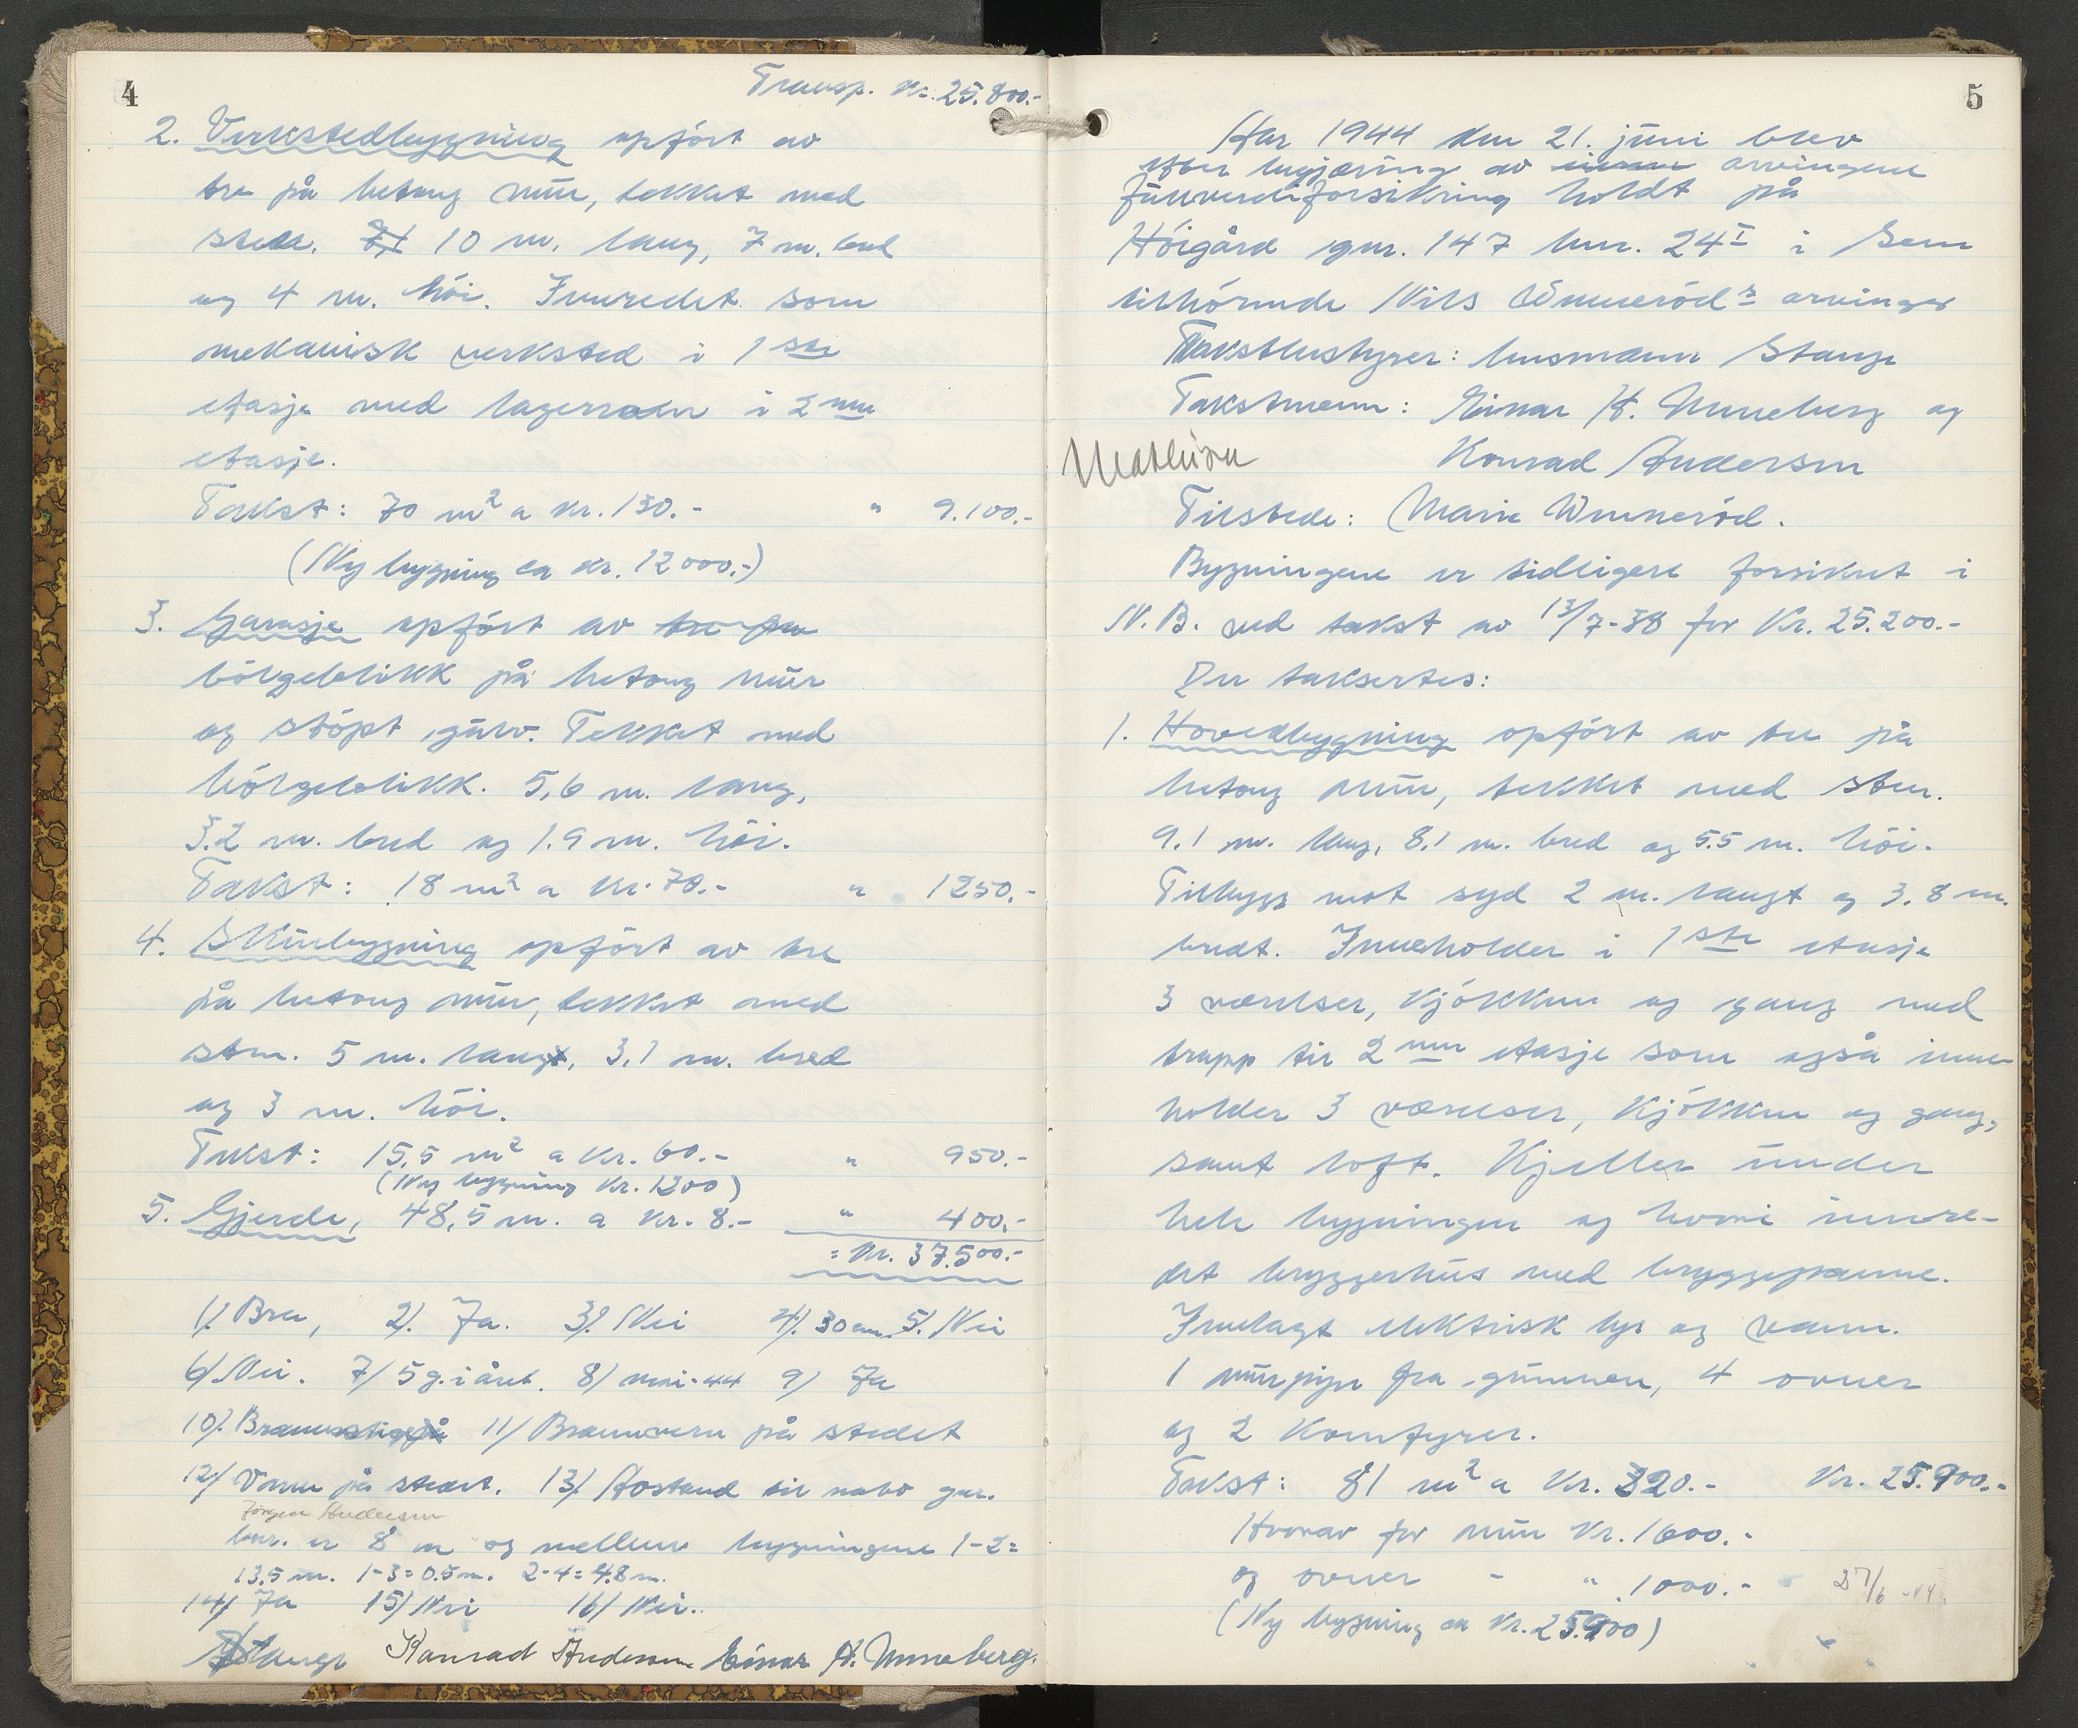 4
Transp. Kr. 25.800.-
2. Verkstedbygning opført av
tre på betong mur, tekket med
sten. 10 m. lang, 7 m. bred
og 4 m. høi. Innredet som
mekanisk verksted i 1ste
etasje med lagerrom i 2nen
etasje.
Takst: 70 m² a kr. 130.- " 9.100.-
(Ny bygning ca kr. 12000.-)
3. Garasje opført av tre på
bølgeblikk på betong mur
og støpt gulv. Tekket med
bølgeblikk. 5,6 m. lang,
3.2 m. bred og 1.9 m. høi.
Takst: 18 m² a kr. 70.- " 1250.-
4. Skurbygning opført av tre
på betong mur, tekket med
sten. 5 m. lang, 3,1 m. bred
og 3 m. høi.
Takst: 15,5 m² a kr. 60.- " 950.-
(Ny bygning kr. 1200)
5. Gjerde, 48,5 m. a kr. 8.- " 400.-
= Kr. 37.500.-
1/. Bra, 2/. Ja. 3/. Nei 4/. 30 cm. 5/. Nei
6/ Nei. 7/ 5 g. i året. 8/ mai-44 9/ Ja
10/. Brannstige på 11/ Brannvern på stedet
12/ Vann på stedet. 13/ Avstand til nabo gnr.
Jørgen Andersen
bnr. er 8 m og mellem bygningene 1-2=
13,5 m. 1-3=0.5 m. 2-4=4.8 m.
14/ Ja 15/ Nei 16/ Nei.
Stange Konrad Andersen Einar H. Unneberg.
5
Aar 1944 den 21. juni blev
efter begjæring av arvingene
fullverdiforsikring holdt på
Høigård gnr. 147 bnr. 24I i Sem
tilhørende Nils Unnerøds arvinger
Takstbestyrer: lensmann Stange
Takstmenn: Einar H. Unneberg og
Konrad Andersen
Tilstede: Marie Unnerød.
Bygningene er tidligere forsikret i
N. B. ved takst av 13/7-38 for Kr. 25.200.-
Der taksertes:
1. Hovedbygning opført av tre på
betong mur, tekket med sten.
9.1 m. lang, 8,1 m. bred og 5.5 m. høi.
Tilbygg mot syd 2 m. langt og 3.8 m.
bredt. Inneholder i 1ste etasje
3 værelser, kjøkken og gang med
trapp til 2nen etasje som også inne-
holder 3 værelser, kjøkken og gang,
samt loft. Kjeller under
hele bygningen og hvori innre-
det bryggerhus med bryggepanne.
Innlagt elektrisk lys og vann.
1 murpipe fra grunnen, 4 ovner
og 2 komfyrer.
Takst: 81 m² a Kr. 320.- Kr. 25.900.-
Hvorav for mur Kr. 1600.-
og ovner - " 1000.-
27/6-44.
(Ny bygning ca Kr. 25.900)